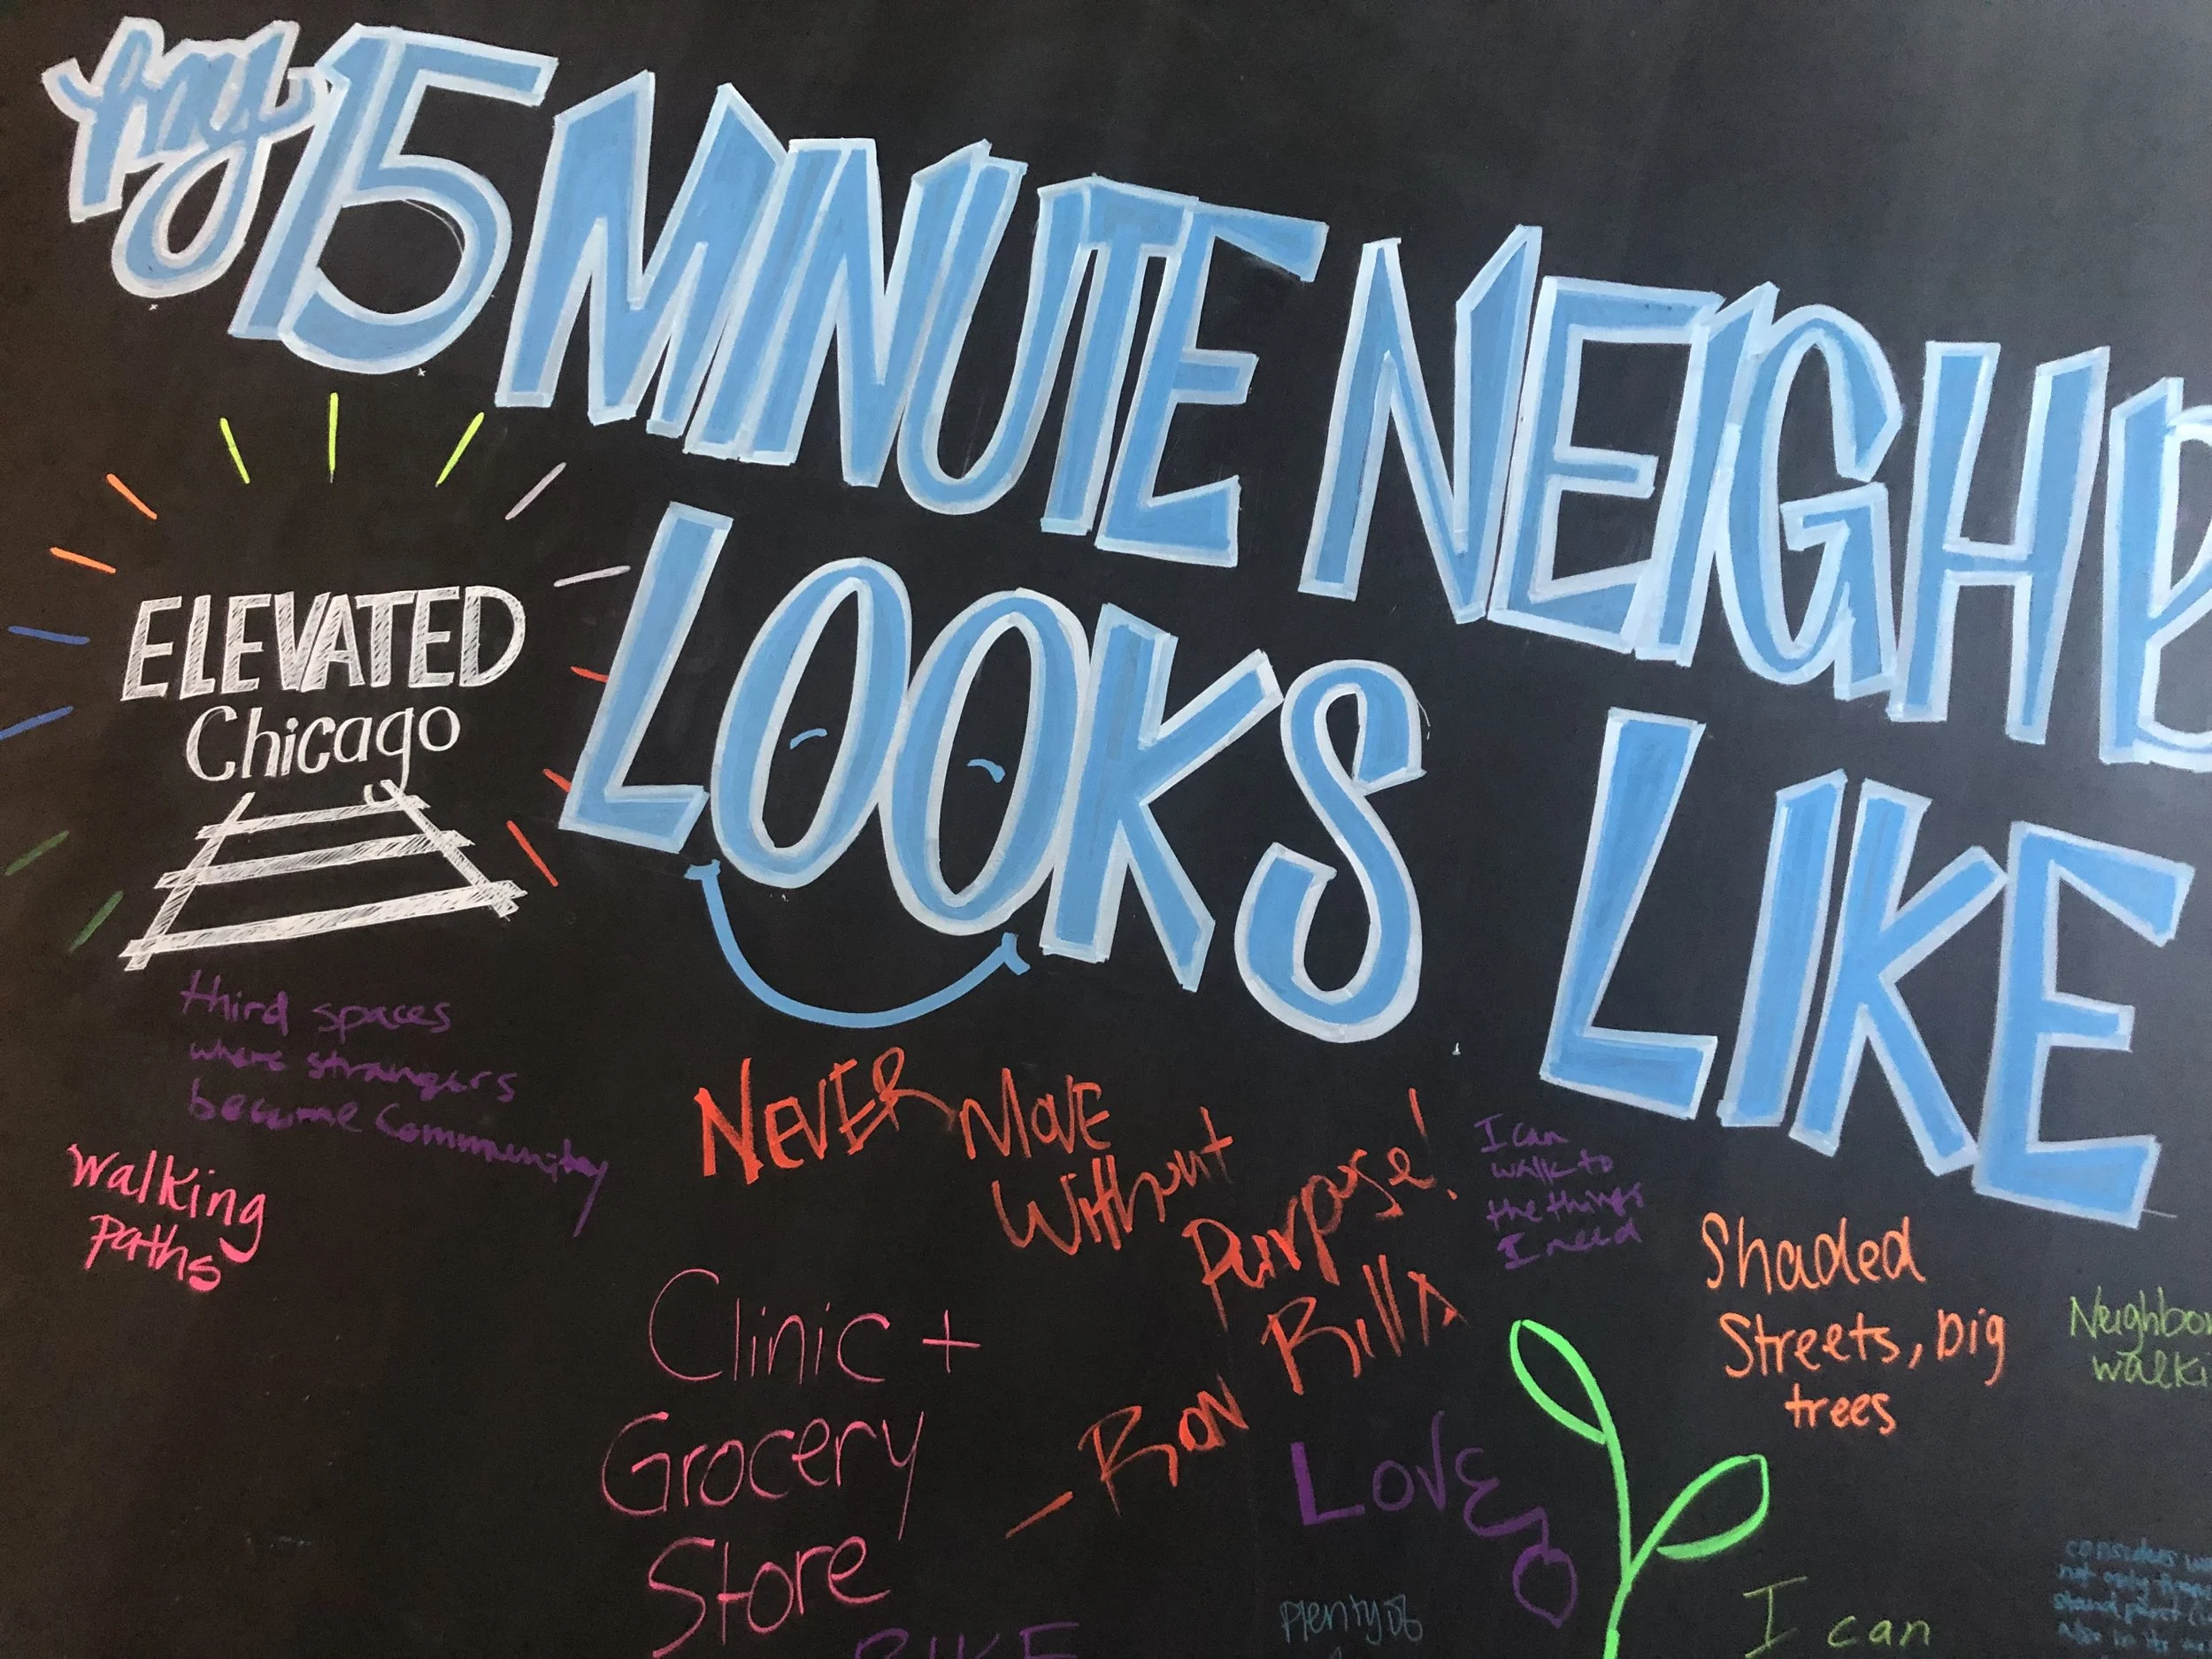 my 15 MINUTE NEIGHB
LOOKS LIKE
ELEVATED
Chicago
third spaces
where strangers
become Community
walking
paths
NEVER MOVE
Without
Purpose!
– RON
BillA
I can
walk to
the things
I need
Shaded
Streets, big
trees
Neighbor
walki
Clinic +
Grocery
Store
LOVE
BIKE
Plenty of
I can
considers
not only